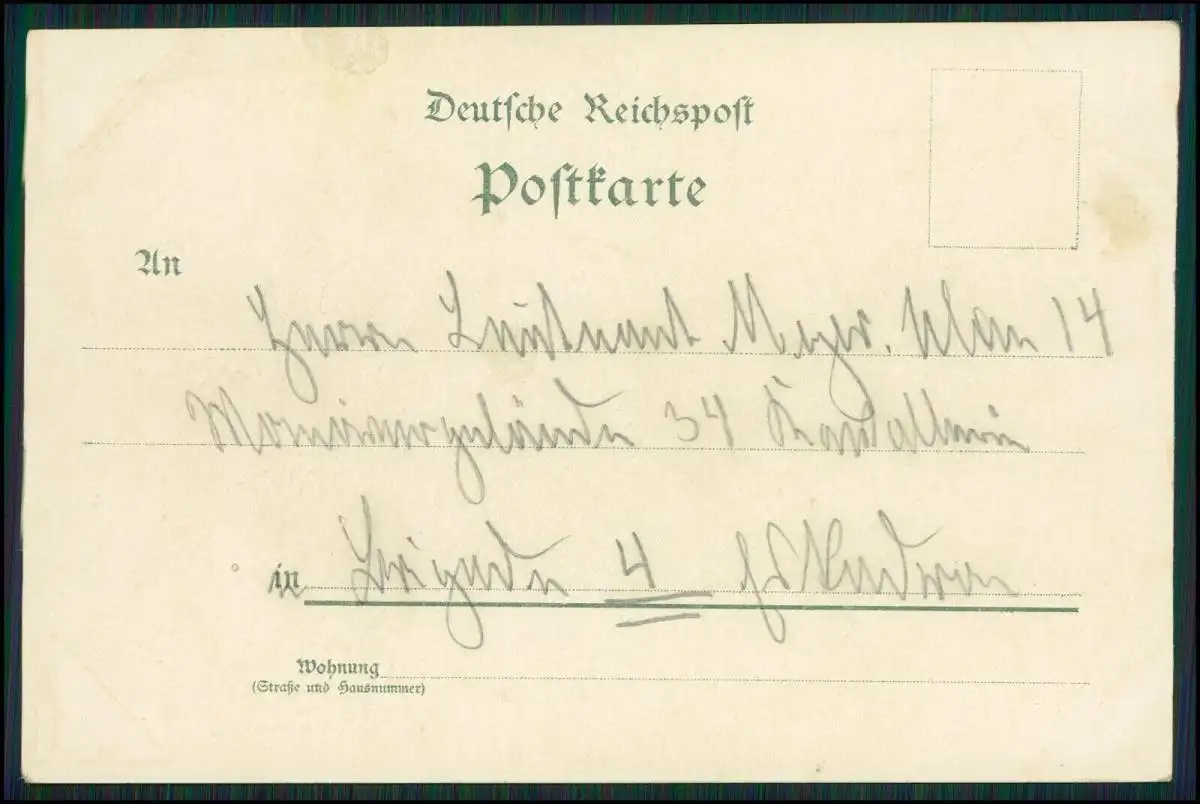 Deutsche Reichspost
Postkarte
An
Herrn Leutnant Meyer. Ulan 14
Manövergelände 34 Kavallerie
in Brigade 4 Eskadron
Wohnung
(Straße und Hausnummer)